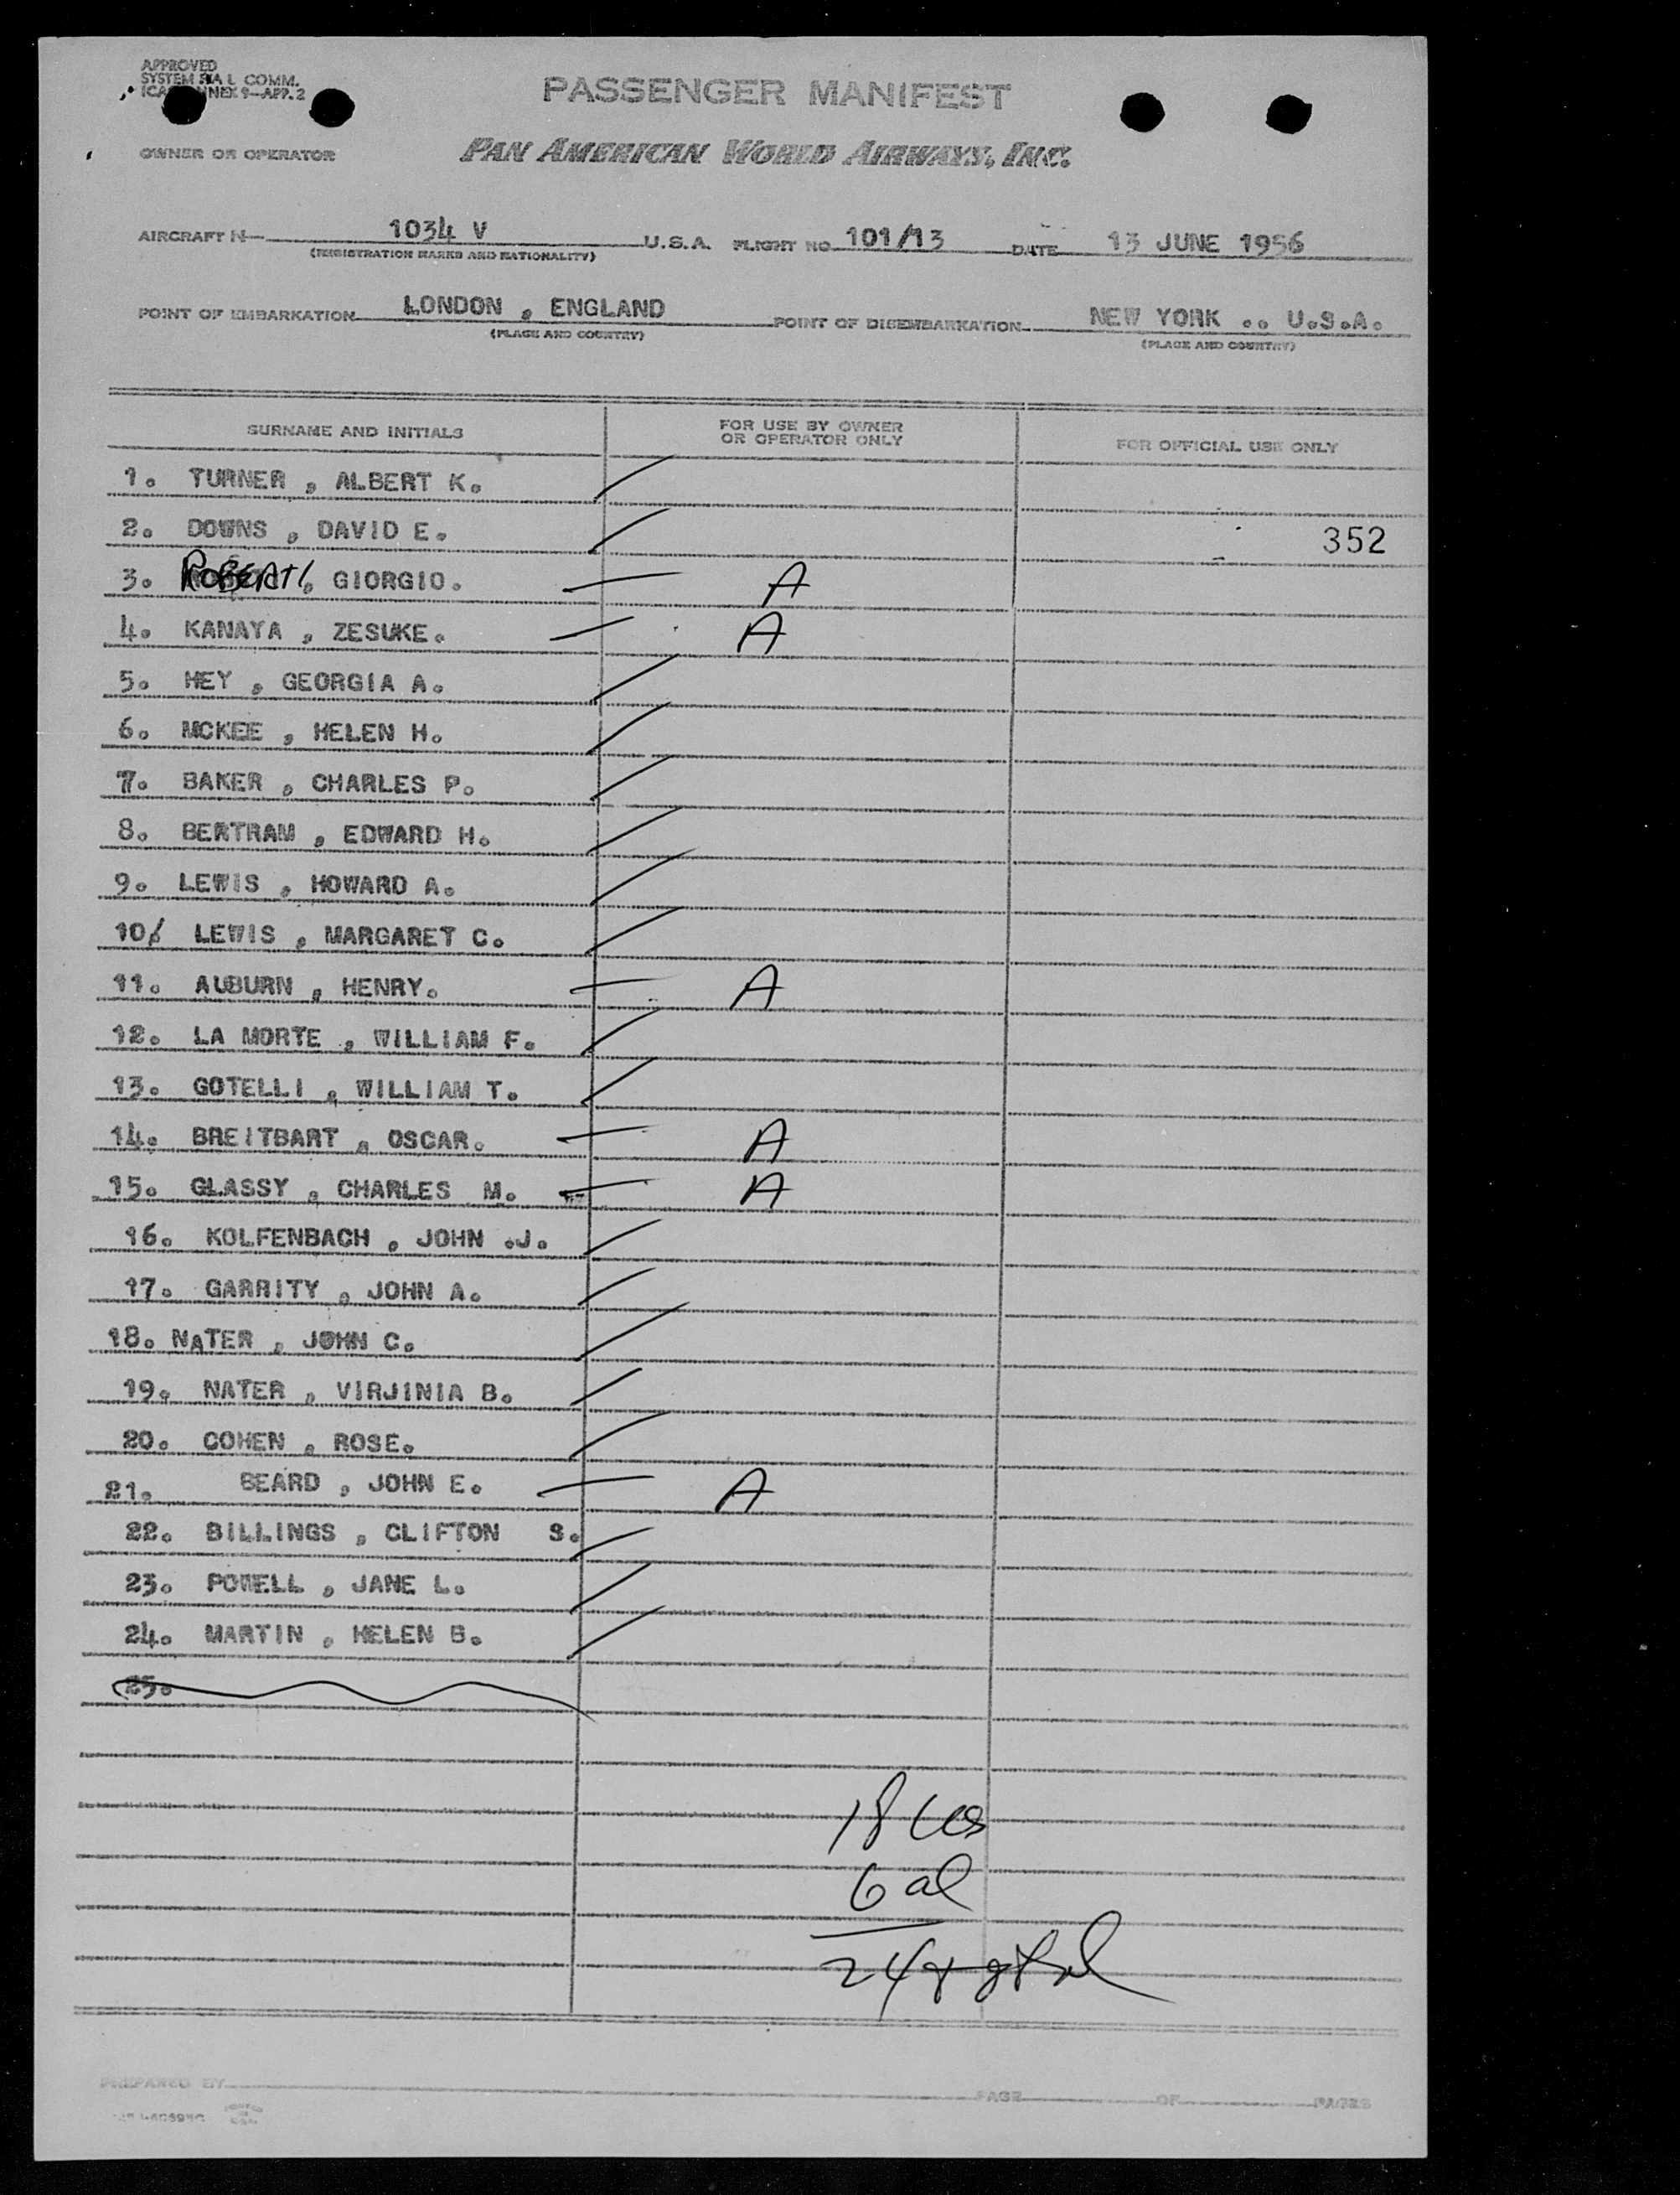 APPROVED
SYSTEM MAL COMM.
ANNEX 9—APP. 2
PASSENGER MANIFEST
OWNER OR OPERATOR PAN AMERICAN WORLD AIRWAYS, INC.
AIRCRAFT N— 1034 V U.S.A. FLIGHT NO 101/13 DATE 13 JUNE 1956
(REGISTRATION MARKS AND NATIONALITY)
POINT OF EMBARKATION LONDON , ENGLAND POINT OF DISEMBARKATION NEW YORK .. U.S.A.
(PLACE AND COUNTRY) (PLACE AND COUNTRY)
SURNAME AND INITIALS FOR USE BY OWNER OR OPERATOR ONLY FOR OFFICIAL USE ONLY
1. TURNER , ALBERT K.
2. DOWNS , DAVID E. 352
3. ROBERTI, GIORGIO. A
4. KANAYA , ZESUKE. A
5. HEY , GEORGIA A.
6. MCKEE , HELEN H.
7. BAKER , CHARLES P.
8. BERTRAM , EDWARD H.
9. LEWIS , HOWARD A.
10/ LEWIS , MARGARET C.
11. AUBURN , HENRY. A
12. LA MORTE , WILLIAM F.
13. GOTELLI , WILLIAM T.
14. BREITBART , OSCAR. A
15. GLASSY , CHARLES M. A
16. KOLFENBACH , JOHN .J.
17. GARRITY , JOHN A.
18. NATER , JOHN C.
19. NATER , VIRJINIA B.
20. COHEN , ROSE.
21. BEARD , JOHN E. A
22. BILLINGS , CLIFTON S.
23. POWELL , JANE L.
24. MARTIN , HELEN B.
25.
18 US
6 al
24
PREPARED BY PAGE OF PAGES